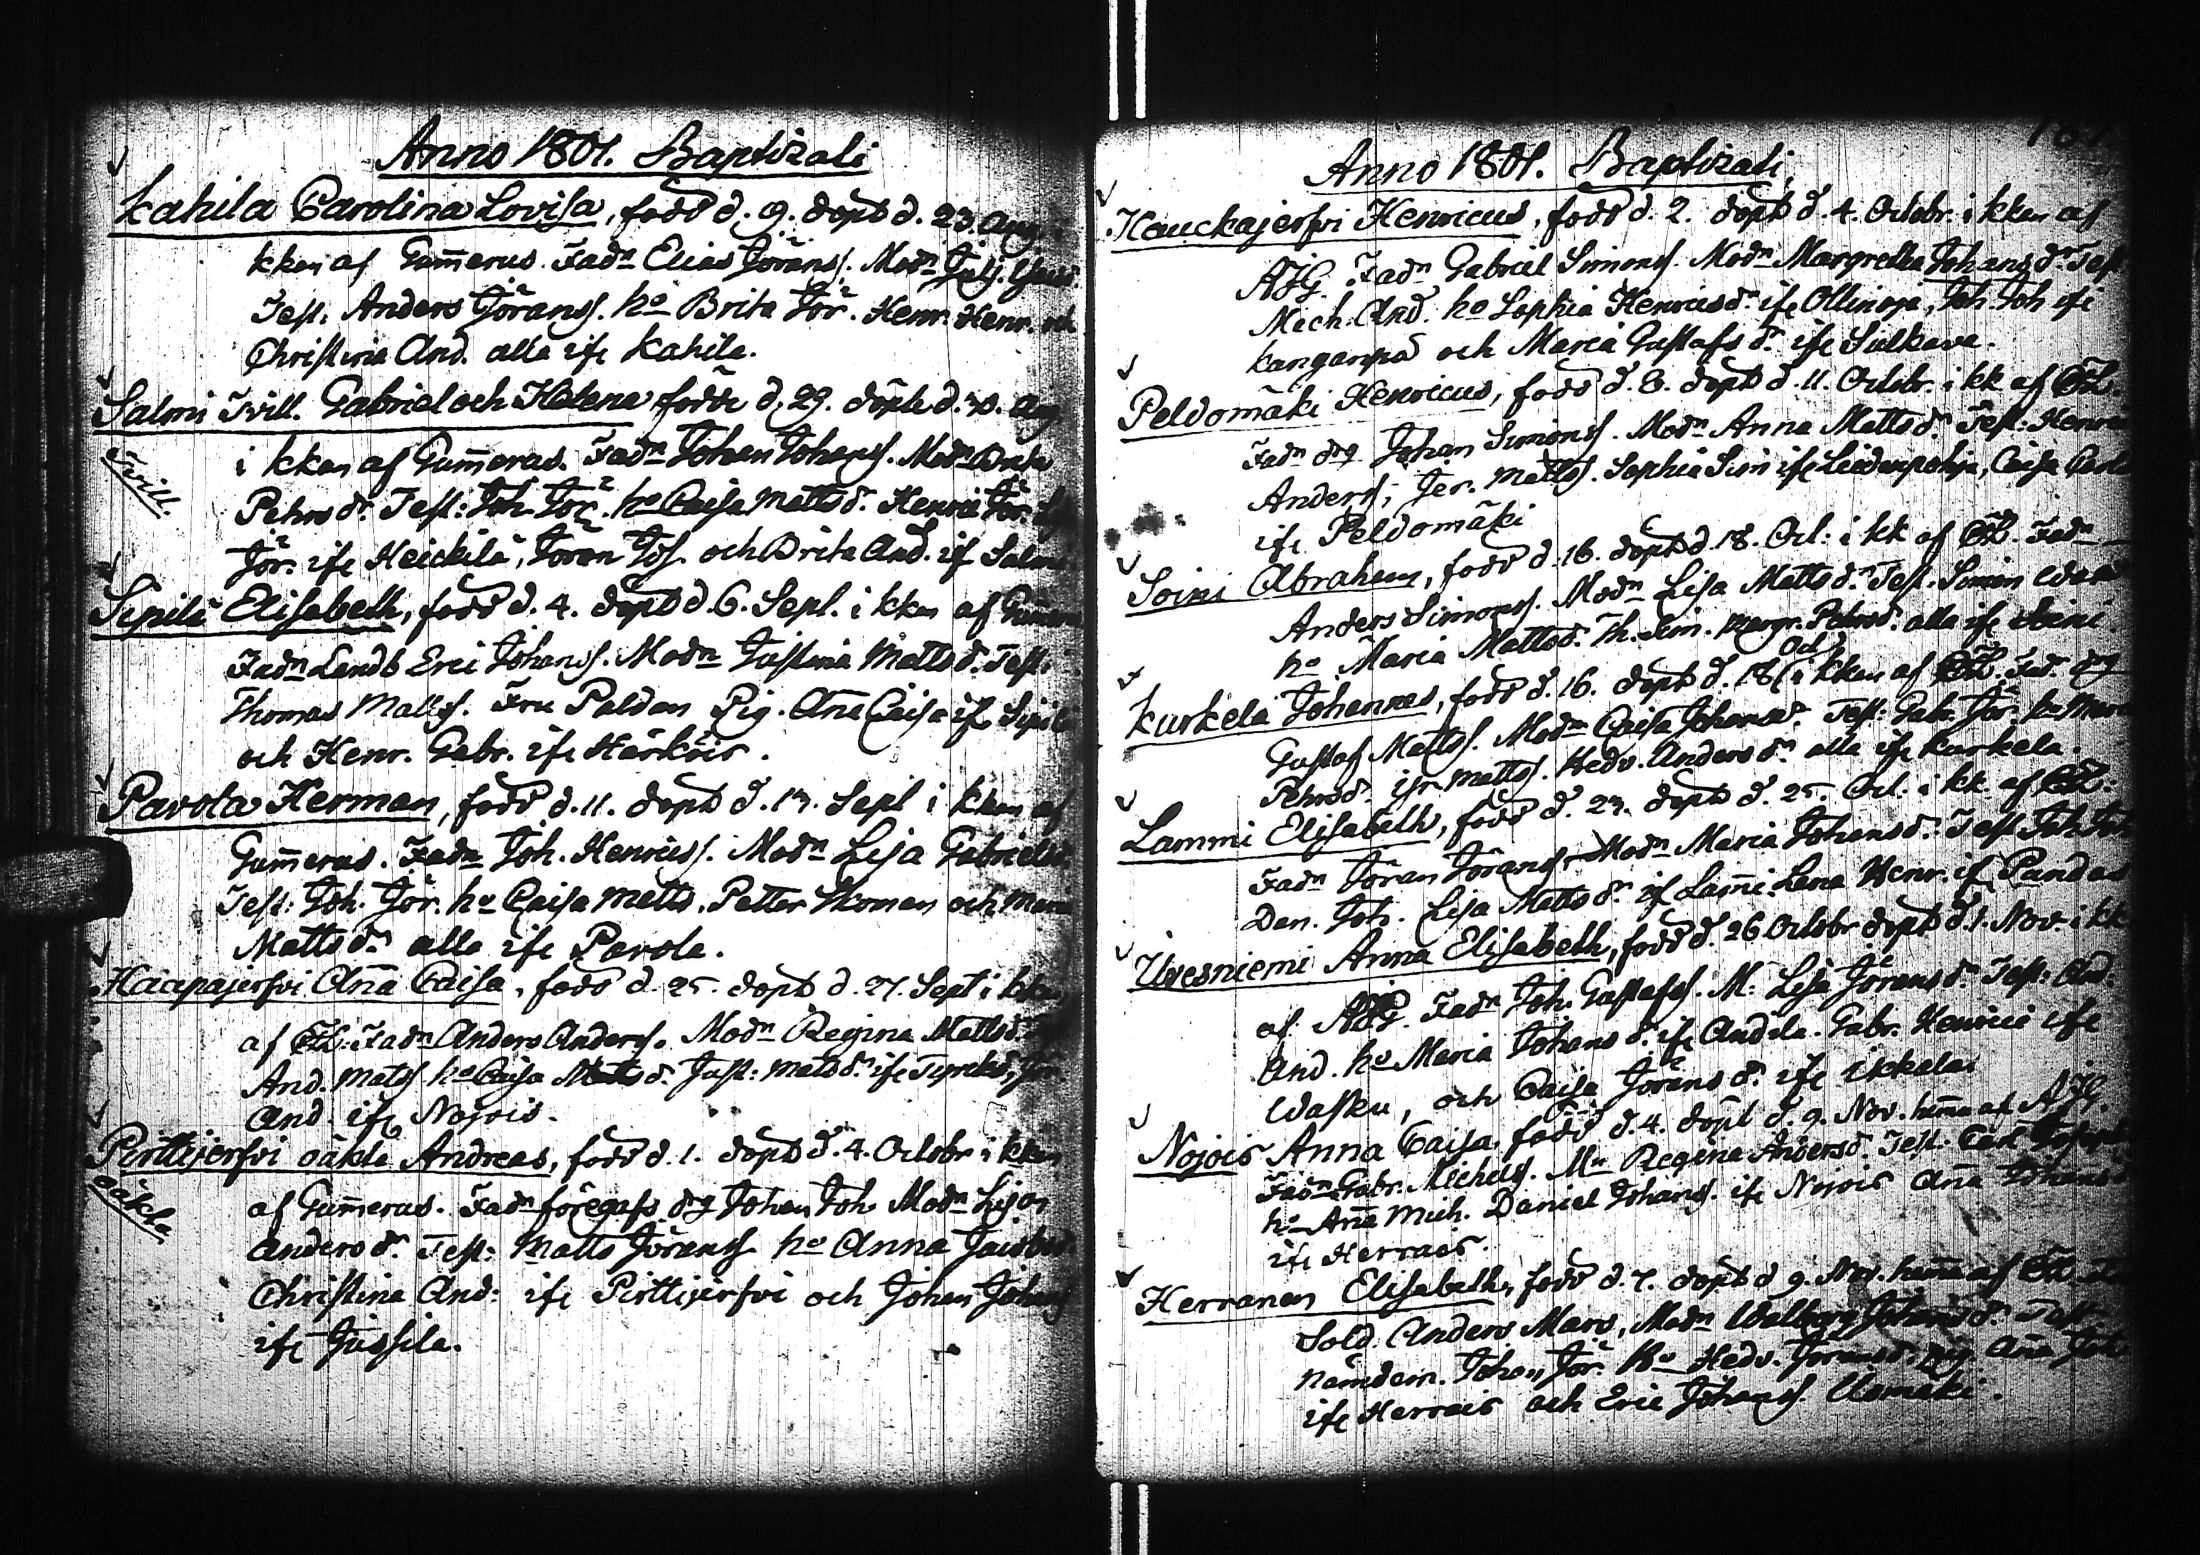 Anno 1801. Baptizati
Kahila Carolina Lovisa, född d. 9. döpt d. 23. Aug. i
kkan af Gum̄erus. Fadn Elias Jöranss. Modn
Test. Anders Jöranss. ho Brita Jör. Henr. Henr. och
Christina And. alla ifr Kahila.
Salmi Tvill. Gabriel och Helena födde d. 29. döpte d. 30. Aug
i kkan af Gum̄erus. Fadn Johan Johanss. Modn Brita
Tvill.
Petersdr. Test: Joh. Jör. ho Caisa Mattsdr. Henric Jör.
Jör. ifr Heickilä, Jöran Jos. och Brita And. ifr Salmi
Sipilä Elisabeth, född d. 4. döpt d. 6. Sept. i kkan af Gum̄erus
Fadn Landb Eric Johanss. Modn Justina Mattsdr. Test:
Thomas Matss. Fru Paldan Pig. An̄a Caisa ifr Sipilä
och Henr. Gabr. ifr Härköis.
Pavola Herman, född d. 11. döpt d. 13. Sept i kkan af
Gum̄erus. Fadn Joh. Henricss. Modn Lisa Gabrielsd.
Test: Joh. Jör. ho Caisa Matts. Petter Ekoman och Maria
Mattsdr alla ifr Pavola.
Haapajerfvi An̄a Caisa, född d. 25. döpt d. 27. Sept i kkan
af CH: Fadn Anders Anderss. Modn Regina Mattsdr
And. Mats ho Caisa Mattsdr. Just: Matsdr ifr
And. ifr Nojois.
Pirttijerfvi oäkta Andreas, född d. 1. döpt d. 4. Octobr. i kkan
oäkta
af Gum̄erus. Fadn föregafs dr Johan Joh Modn Lisa
Andersdr. Test: Matts Jöranss ho Anna Jacobsd.
Christina And: ifr Pirttijerfvi och Johan Johanss
ifr Jussila.
Anno 1801. Baptizati,
Hauckajerfvi Henricus, född d. 2. döpt d. 4. Octobr. i kkan af
AJG. Fadn Gabriel Simonss. Modn Margretha Johansdr. Test
Mich. And. ho Sophia Henricsdr. ifr Ollinoja, Joh. Joh ifr
Kanganpä och Maria Gustafsdr. ifr Sulkava.
Peldomäki Henricus, född d. 8. döpt d. 11. Octobr. i kk af CH.
Fadn dr Johan Simonss. Modn Anna Mattsdr. Test: Henric
Anderss, Jer. Mattss. Sophia Sim ifr Liedenpohja, Caisa
ifr Peldomäki
Soini Abraham, född d. 16. döpt d. 18. Oct: i kk af CH. Fadn
Anders Simonss. Modn Lisa Mattsdr. Test. Simon
ho Maria Mattsdr. Th. Sim. Margr. Petersdr. alla ifr Soini
Kurkela Johannes, född d. 16. döpt d. 18 Oct i kkan af CH. Fad. dr
Gustaf Mattss. Modn Caisa Johansdr. Test: Gabr. Jör. ho Maria
Petersdr. Isr Mattss. Hedv. Andersdr. alla ifr Kurkela.
Lammi Elisabeth, född d. 23. döpt d. 25. Oct. i kk. af CH:
Fadn Jöran Jöranss. Modn Maria Johansdr. Test Joh Joh
Dan. Joh. Lisa Mattsdr. ifr Lam̄i Lena Henr. ifr Pandas
Uvesniemi Anna Elisabeth, född d. 26 Octobr döpt d. 1. Nov. i kk
af AJG. Fadn Joh. Gustafss. M. Lisa Jöransdr. Test: And.
And. ho Maria Johansdr. ifr Andila. Gabr. Henric ifr
Wasku, och Caisa Jöransdr. ifr Ickkala
Nojois Anna Caisa, född d. 4. döpt d. 9. Nov. hem̄a af AJG.
Fadn Gabr. Michelss. Mn Regina Andersdr. Test: Carl
ho An̄a Mich. Daniel Johanss. ifr Nojois An̄a Johansd
ifr Herrais.
Herranen Elisabeth, född d. 7. döpt d 9. Nov. hem̄a af CH.
Sold. Anders Mars, Modn Walborg Johansdr. Test.
Nämdem. Johan Jör. ho Hedv. Jöransdr. pig An̄a Joh.
ifr Herrais och Eric Johanss. Uomäki.